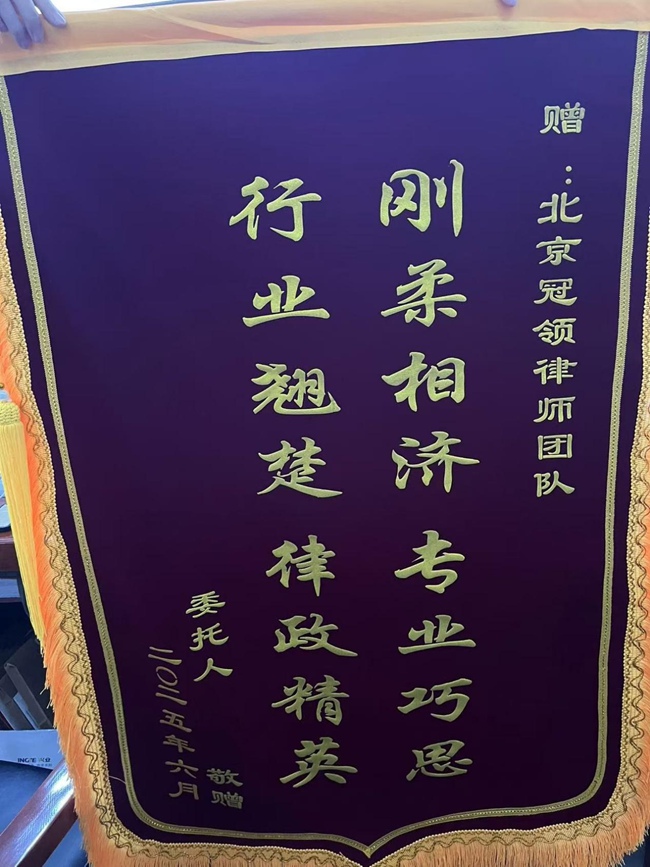 赠：北京冠领律师团队
刚柔相济 专业巧思
行业翘楚 律政精英
委托人
敬赠
二〇二五年六月